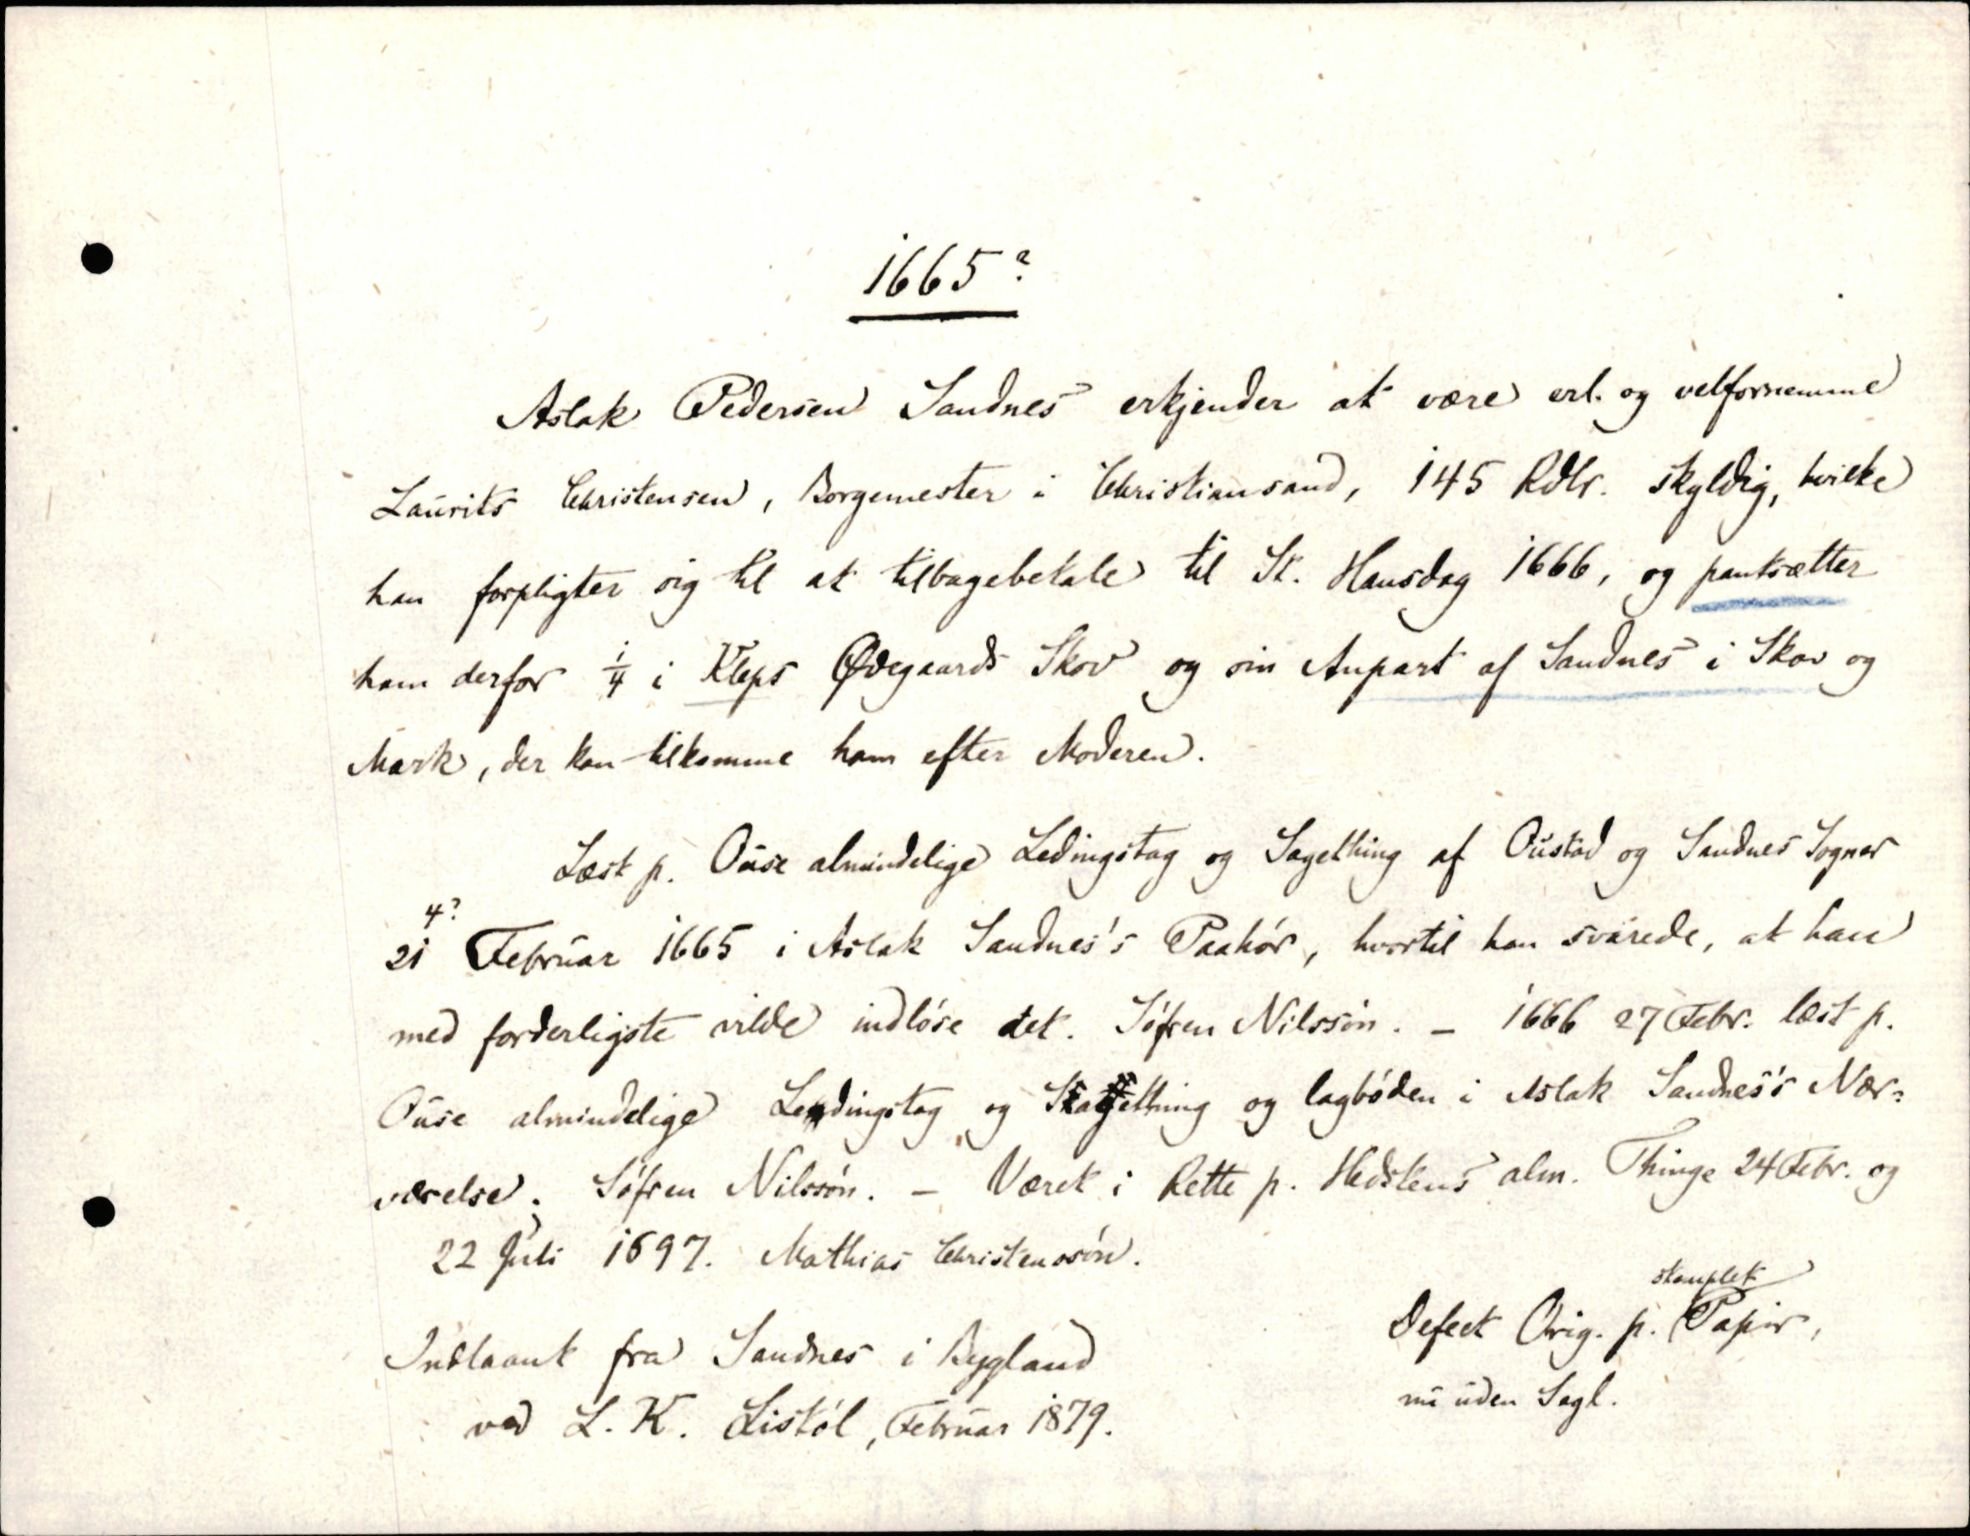 1665?
Aslak Pedersen Sandnes erkjender at være erl. og velfornemme
Laurits Christensen, Borgemester i Christiansand, 145 Rdlr. skyldig, hvilke
han forpligter sig til at tilbagebetale til St. Hansdag 1666, og pantsætter
ham derfor 1/4 i Kleps Ødegaards Skov og sin Anpart af Sandnes i Skov og
Mark, der kan tilkomme ham efter Moderen.
Læst p. Ouse almindelige Ledingstag og Sagething af Oustad og Sandnes Sogner
4?
21 Februar 1665 i Aslak Sandnes's Paahør, hvortil han svarede, at han
med forderligste vilde indløse det. Søfren Nilssøn. – 1666 27 Febr. læst p.
Ouse almindelige Ledingstag og Skattething og lagbøden i Aslak Sandnes's Nær-
værelse. Søfren Nilssøn. – Været i Rette p. Hedskens alm. Thinge 24 Febr. og
22 Juli 1697. Mathias Christenssøn.
stemplet
Defect Orig. p. Papir,
nu uden Segl.
Indlaant fra Sandnes i Bygland
ved L. K. Liskøl, Februar 1879.